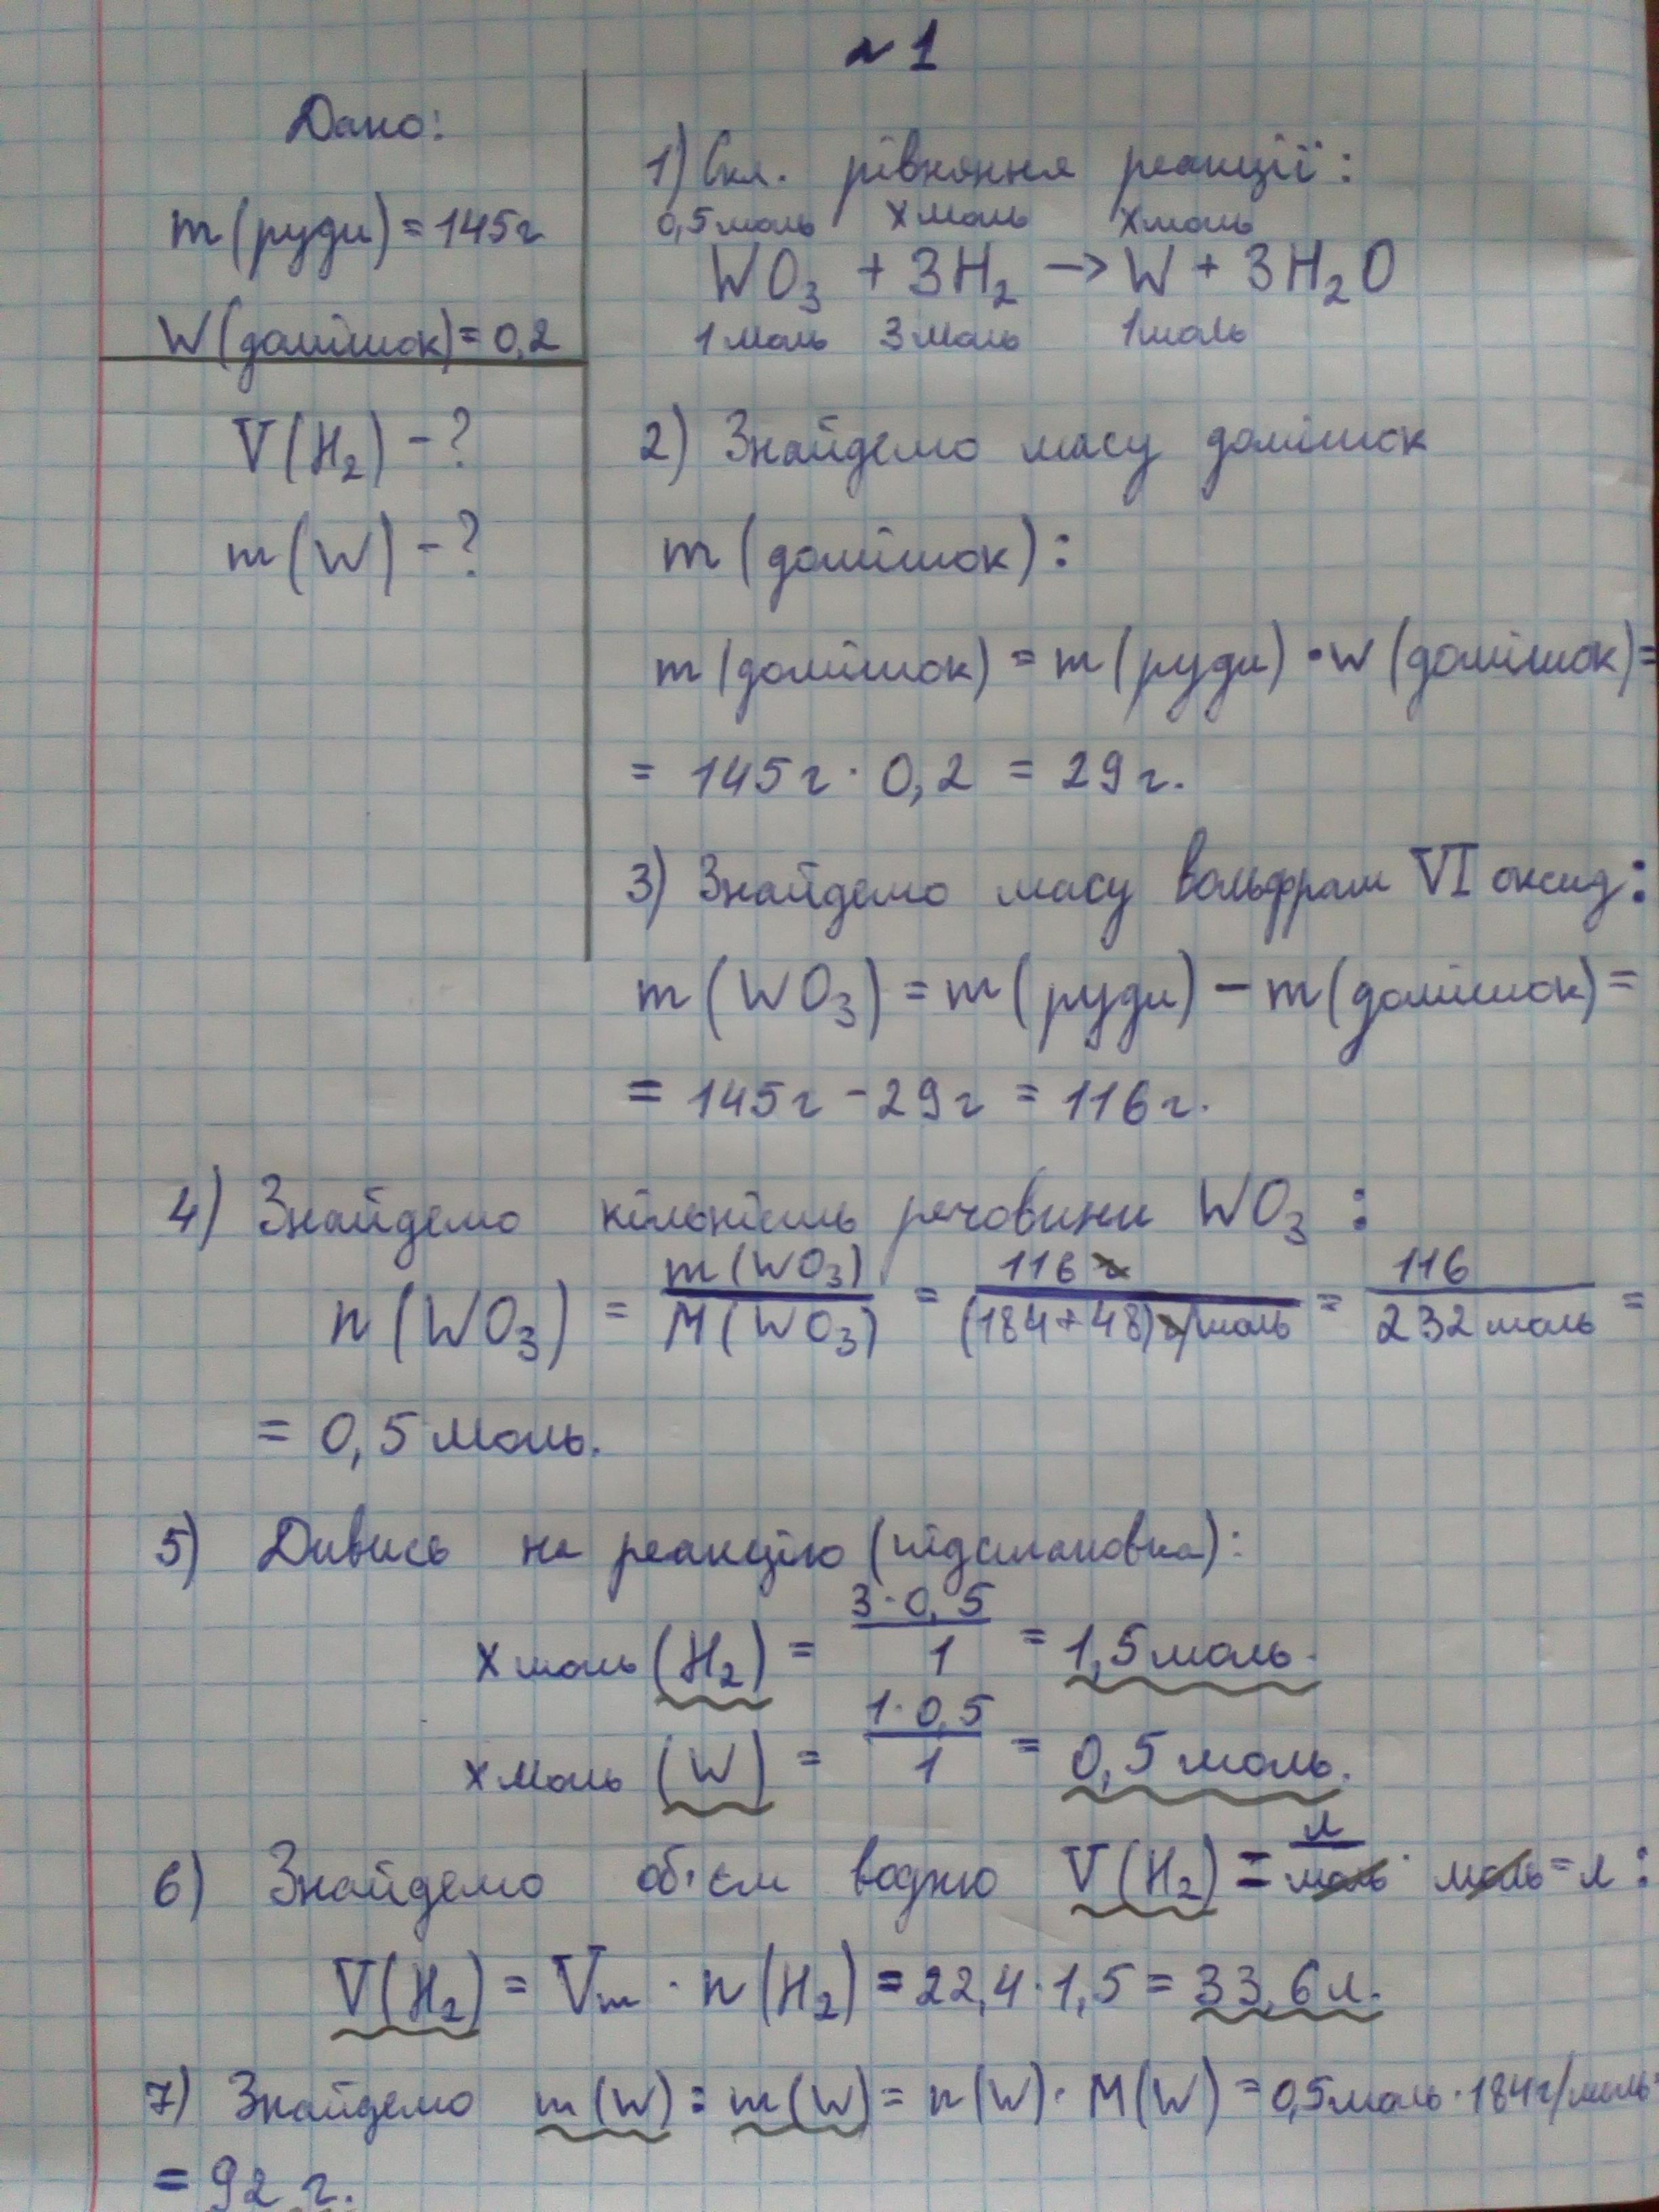 №1
Дано:
m(руди)=145г
W(домішок)=0,2
V(H₂)-?
m(W)-?
1) Скл. рівняння реакції:
0,5моль хмоль хмоль
WO₃ + 3H₂ → W + 3H₂O
1моль 3моль 1моль
2) Знайдемо масу домішок
m(домішок):
m(домішок) = m(руди)·w(домішок)=
= 145г·0,2 = 29г.
3) Знайдемо масу вольфрам VI оксид:
m(WO₃)=m(руди)-m(домішок)=
= 145г-29г = 116г.
4) Знайдемо кількість речовини WO₃ :
n(WO₃) = m(WO₃)/M(WO₃) = 116г/(184+48)г/моль = 116/232моль =
= 0,5моль.
5) Дивись на реакцію (підстановка):
хмоль(H₂) = 3·0,5/1 = 1,5моль.
хмоль(W) = 1·0,5/1 = 0,5моль.
6) Знайдемо об'єм водню V(H₂)=л/моль·моль=л:
V(H₂) = Vm·n(H₂)=22,4·1,5=33,6л.
7) Знайдемо m(W): m(W)=n(W)·M(W)=0,5моль·184г/моль=
=92г.